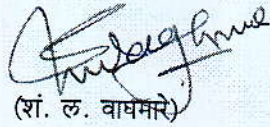 (शं. ल. वाघमारे)